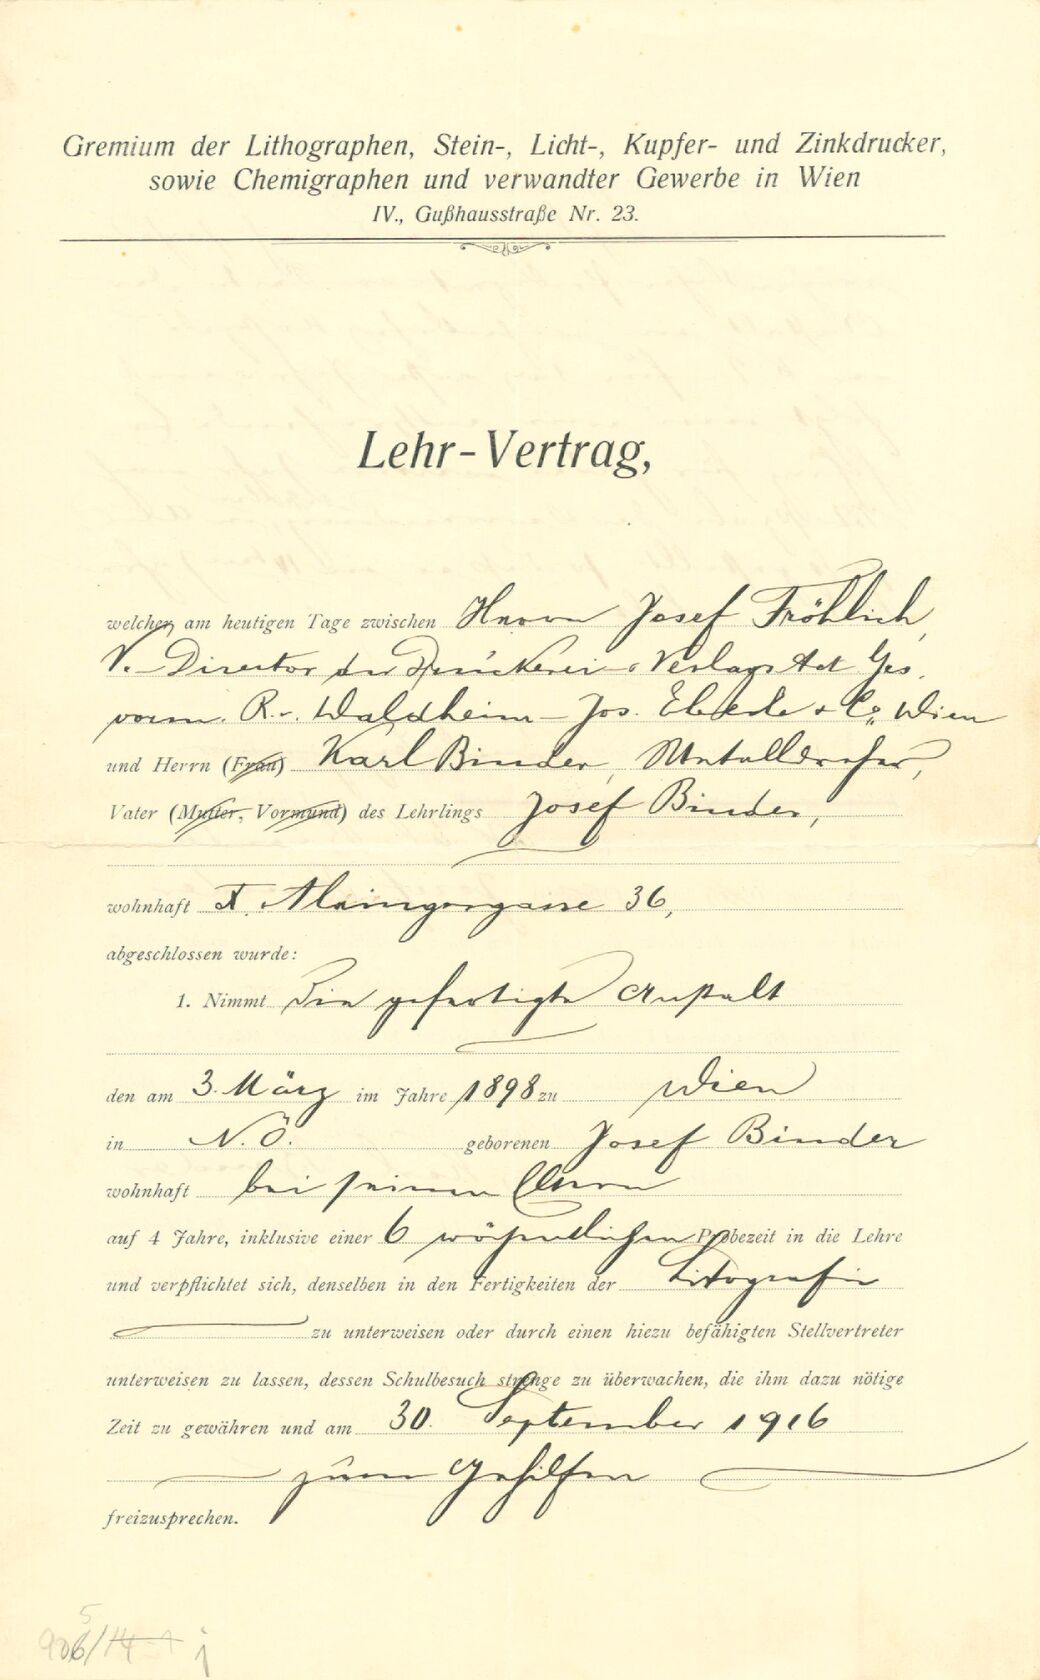 Gremium der Lithographen, Stein-, Licht-, Kupfer- und Zinkdrucker,
sowie Chemigraphen und verwandter Gewerbe in Wien
IV., Gußhausstraße Nr. 23.
Lehr-Vertrag,
welcher am heutigen Tage zwischen Herrn Josef Fröhlich,
V.-Director der Druckerei- & Verlags Act Ges.
vorm. R. v. Waldheim - Jos. Eberle & Co, Wien
und Herrn (Frau) Karl Binder, Metalldreher,
Vater (Mutter, Vormund) des Lehrlings Josef Binder,
wohnhaft X. Alxingergasse 36,
abgeschlossen wurde:
1. Nimmt Die gefertigte Anstalt
den am 3. März im Jahre 1898 zu Wien
in N. Ö. geborenen Josef Binder
wohnhaft bei seinen Eltern
auf 4 Jahre, inklusive einer 6 wöchentlichen Probezeit in die Lehre
und verpflichtet sich, denselben in den Fertigkeiten der Litografie
zu unterweisen oder durch einen hiezu befähigten Stellvertreter
unterweisen zu lassen, dessen Schulbesuch strenge zu überwachen, die ihm dazu nötige
Zeit zu gewähren und am 30. September 1916
zum Gehilfen
freizusprechen.